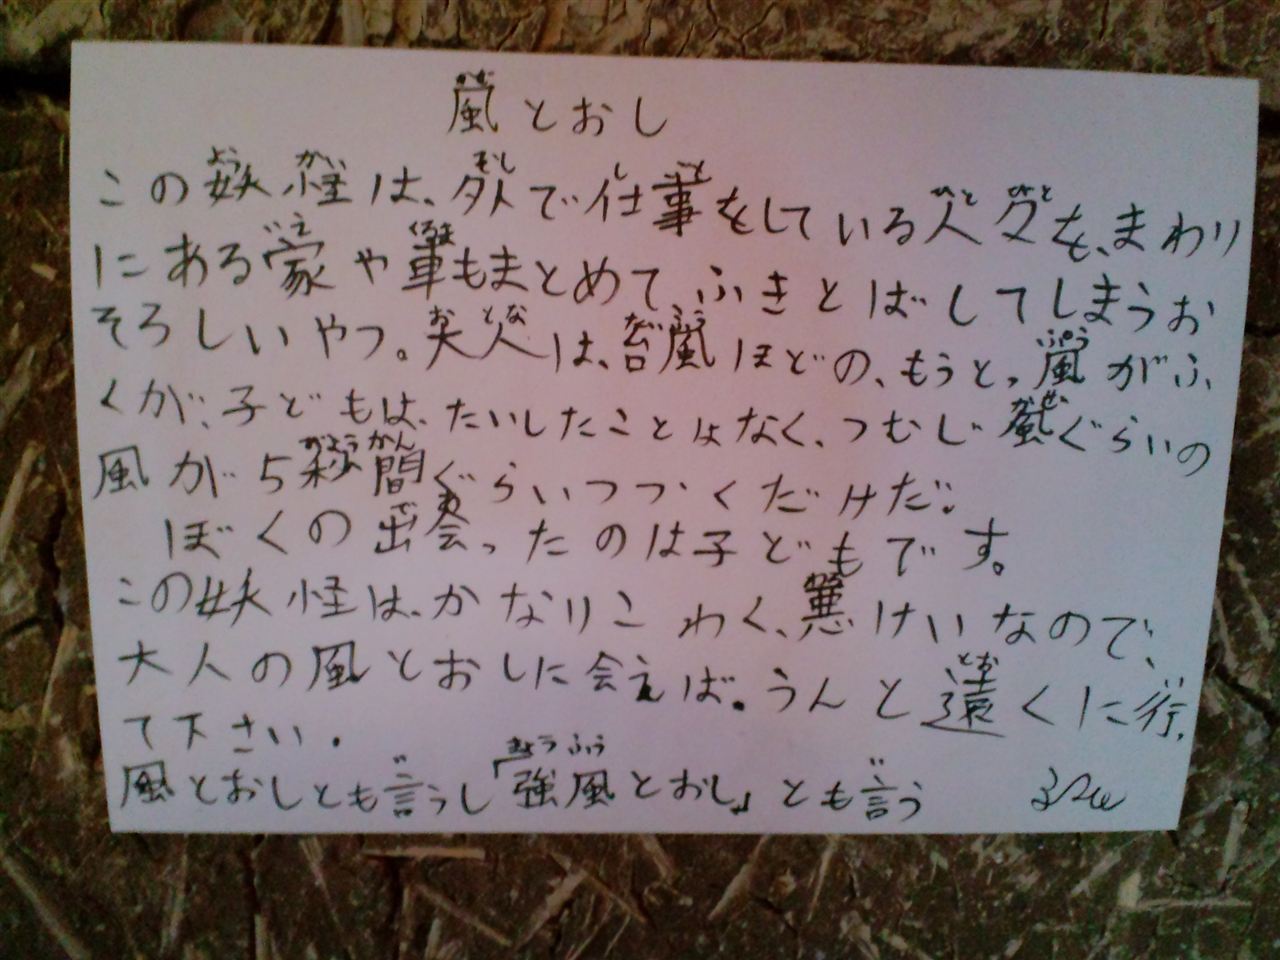 風とおし
この妖怪は、外で仕事をしている人々を、まわり
にある家や車もまとめて、ふきとばしてしまうお
そろしいやつ。大人は、台風ほどの、もうとっ風がふ
くが、子どもは、たいしたことはなく、つむじ風ぐらいの
風が5秒間ぐらいつづくだけだ。
ぼくの出会ったのは子どもです。
この妖怪は、かなりこわく、悪けいなので、
大人の風とおしに会えば。うんと遠くに行っ
て下さい。
風とおしとも言うし「強風とおし」とも言う